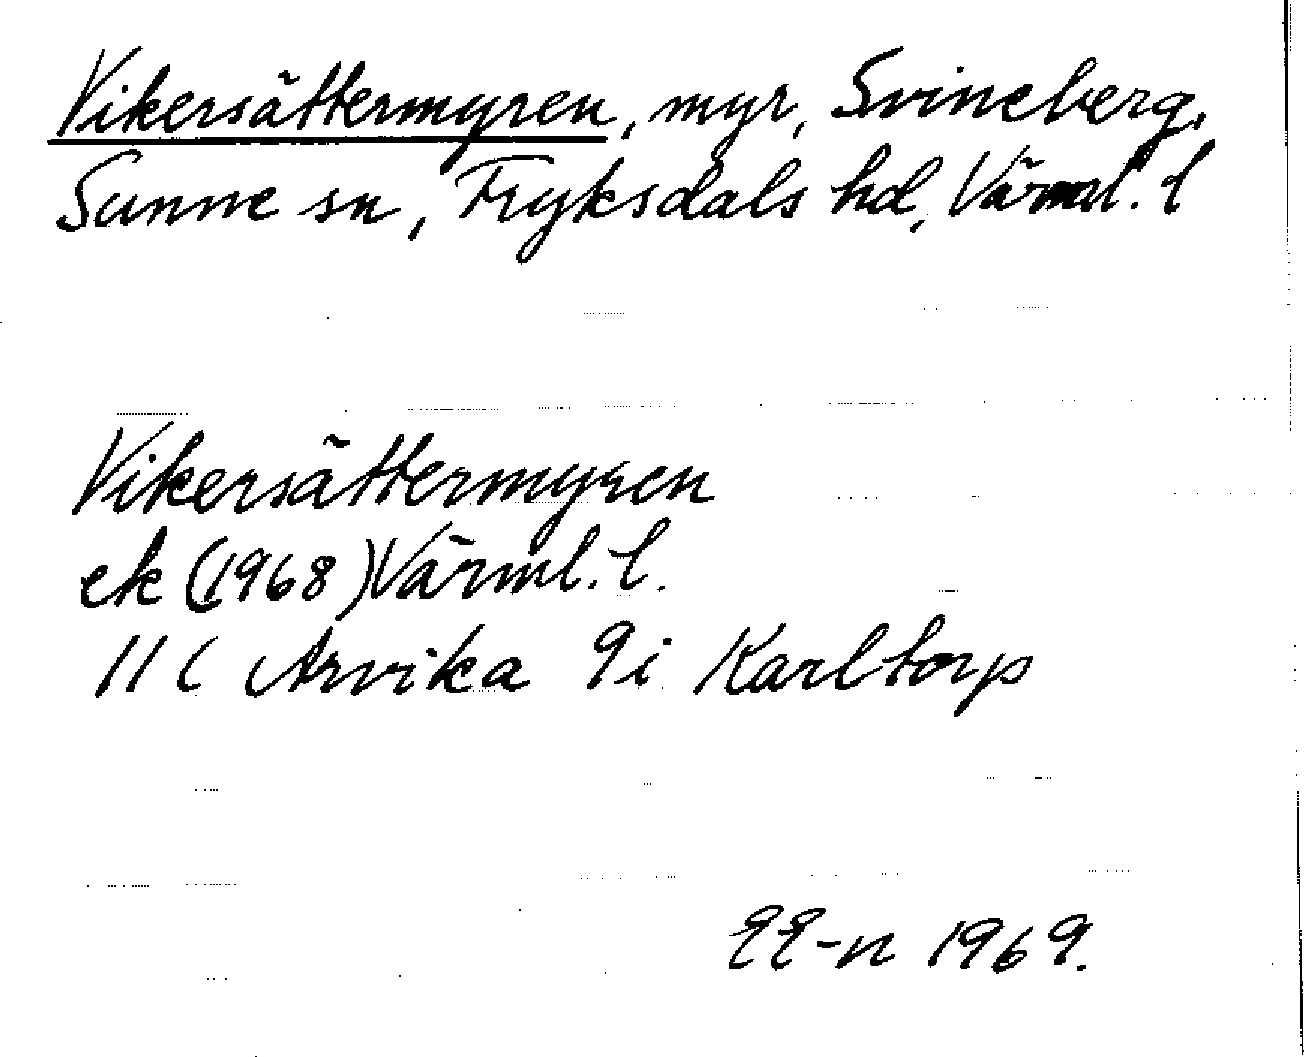 Vikersättermyren, myr, Svineberg,
Sunne sn, Fryksdals hd, Värml. l
Vikersättermyren
ek (1968) Värml. l.
11 C Arvika 9i Karltorp
EE-n 1969.